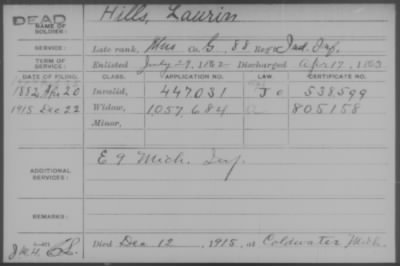 DEAD
NAME OF SOLDIER: Hills, Laurin
SERVICE: Late rank, Mus Co. G, 88 Reg't Ind. Inf.
TERM OF SERVICE: Enlisted July 29, 1862 Discharged Apr 17, 1863
DATE OF FILING. CLASS. APPLICATION NO. LAW CERTIFICATE NO.
1882 Apr 20 Invalid, 447031 538,599
1915 Dec 22 Widow, 1057684 805158
Minor,
ADDITIONAL SERVICES: E 9 Mich. Inf.
REMARKS:
Died Dec 12, 1915, at Coldwater Mich.